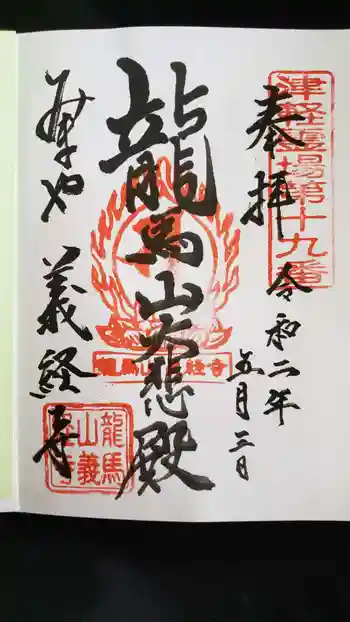 津軽霊場第十九番
奉拝
令和二年
五月三日
龍馬山大悲殿
みまや 義経寺
龍馬山義経寺
龍馬
山義
経寺